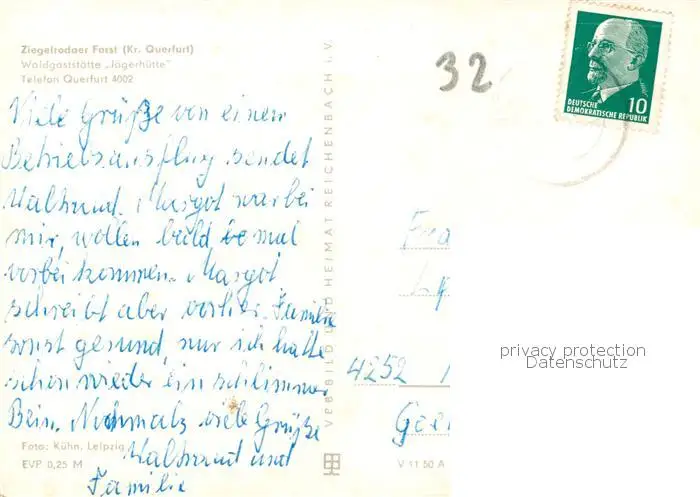 Ziegelrodaer Forst (Kr. Querfurt)
Waldgaststätte „Jägerhütte"
Telefon Querfurt 4002
Viele Grüße von einem
Betriebsausflug sendet
Waltraud. Margot war bei
mir, wollen bald mal
vorbei kommen. Margot
schreibt aber vorher. Familie
sonst gesund, nur ich hatte
schon wieder ein schlimmes
Bein. Nochmals viele Grüße
Waltraud und
Familie
Foto: Kühn, Leipzig
EVP 0,25 M
VEB BILD UND HEIMAT REICHENBACH I. V.
V 11 50 A
32
10
DEUTSCHE
DEMOKRATISCHE REPUBLIK
4252
privacy protection
Datenschutz